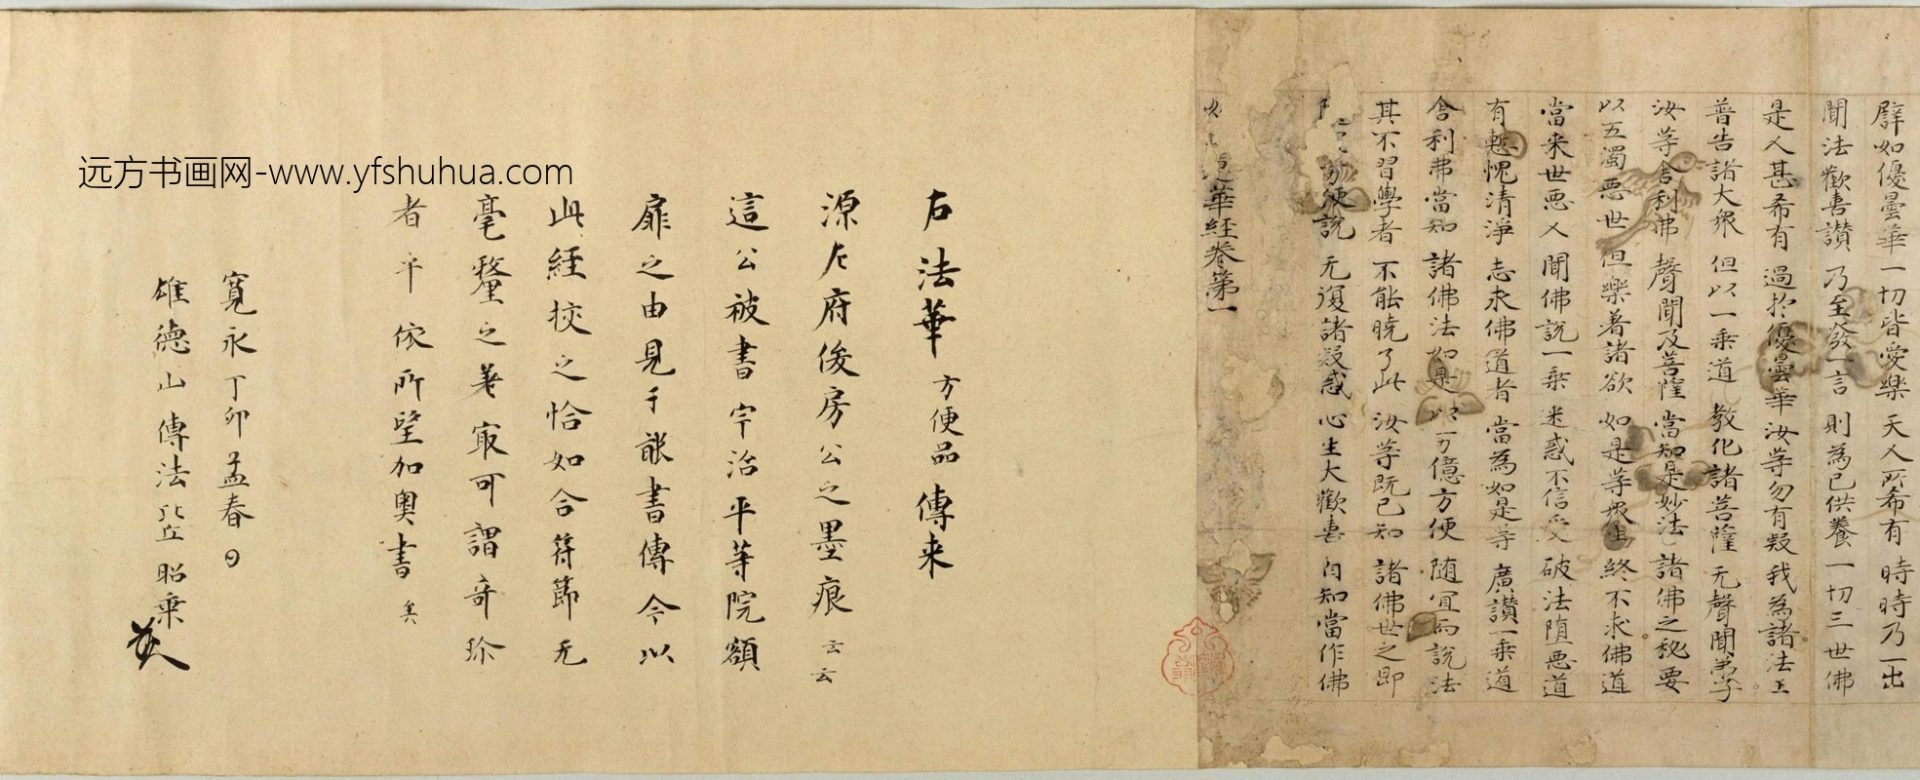 譬如優曇華 一切皆愛樂 天人所希有 時時乃一出
聞法歡喜讚 乃至發一言 則為已供養 一切三世佛
是人甚希有 過於優曇華 汝等勿有疑 我為諸法王
普告諸大眾 但以一乗道 教化諸菩薩 无聲聞弟子
汝等舍利弗 聲聞及菩薩 當知是妙法 諸佛之秘要
以五濁惡世 但樂著諸欲 如是等衆生 終不求佛道
當来世惡人 聞佛說一乗 迷惑不信受 破法堕惡道
有慙愧清淨 志求佛道者 當為如是等 廣讃一乗道
舍利弗當知 諸佛法如是 以万億方便 随冝而說法
其不習學者 不能曉了此 汝等既已知 諸佛世之即
方便說 无復諸疑惑 心生大歡喜 自知當作佛
華経卷第一
右法華方便品傳来
源左府俊房公之墨痕云云
這公被書宇治平等院額
扉之由見于䏻書傳今以
此経挍之恰如合苻節无
毫釐之差寂可謂奇珎
者乎依所望加奥書矣
寛永丁卯孟春日
雄德山傳法比丘昭乗
远方书画网-www.yfshuhua.com